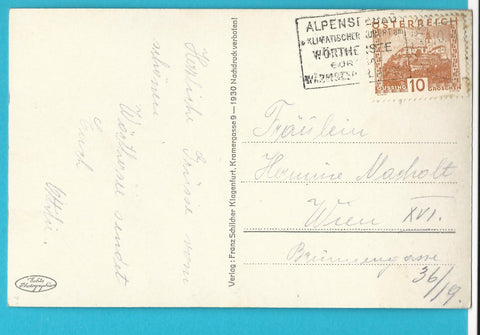 Herzliche Grüsse vom
schönen
Wörthersee sendet
Euch
Verlag: Franz Schilcher Klagenfurt, Kramergasse 9 — 1930 Nachdruck verboten!
Echte
Photographie
ÖSTERREICH
10
GROSCHEN
WÖRTHERSEE
Fräulein
Hermine
Wien XVI.
Brunnengasse
36/19.